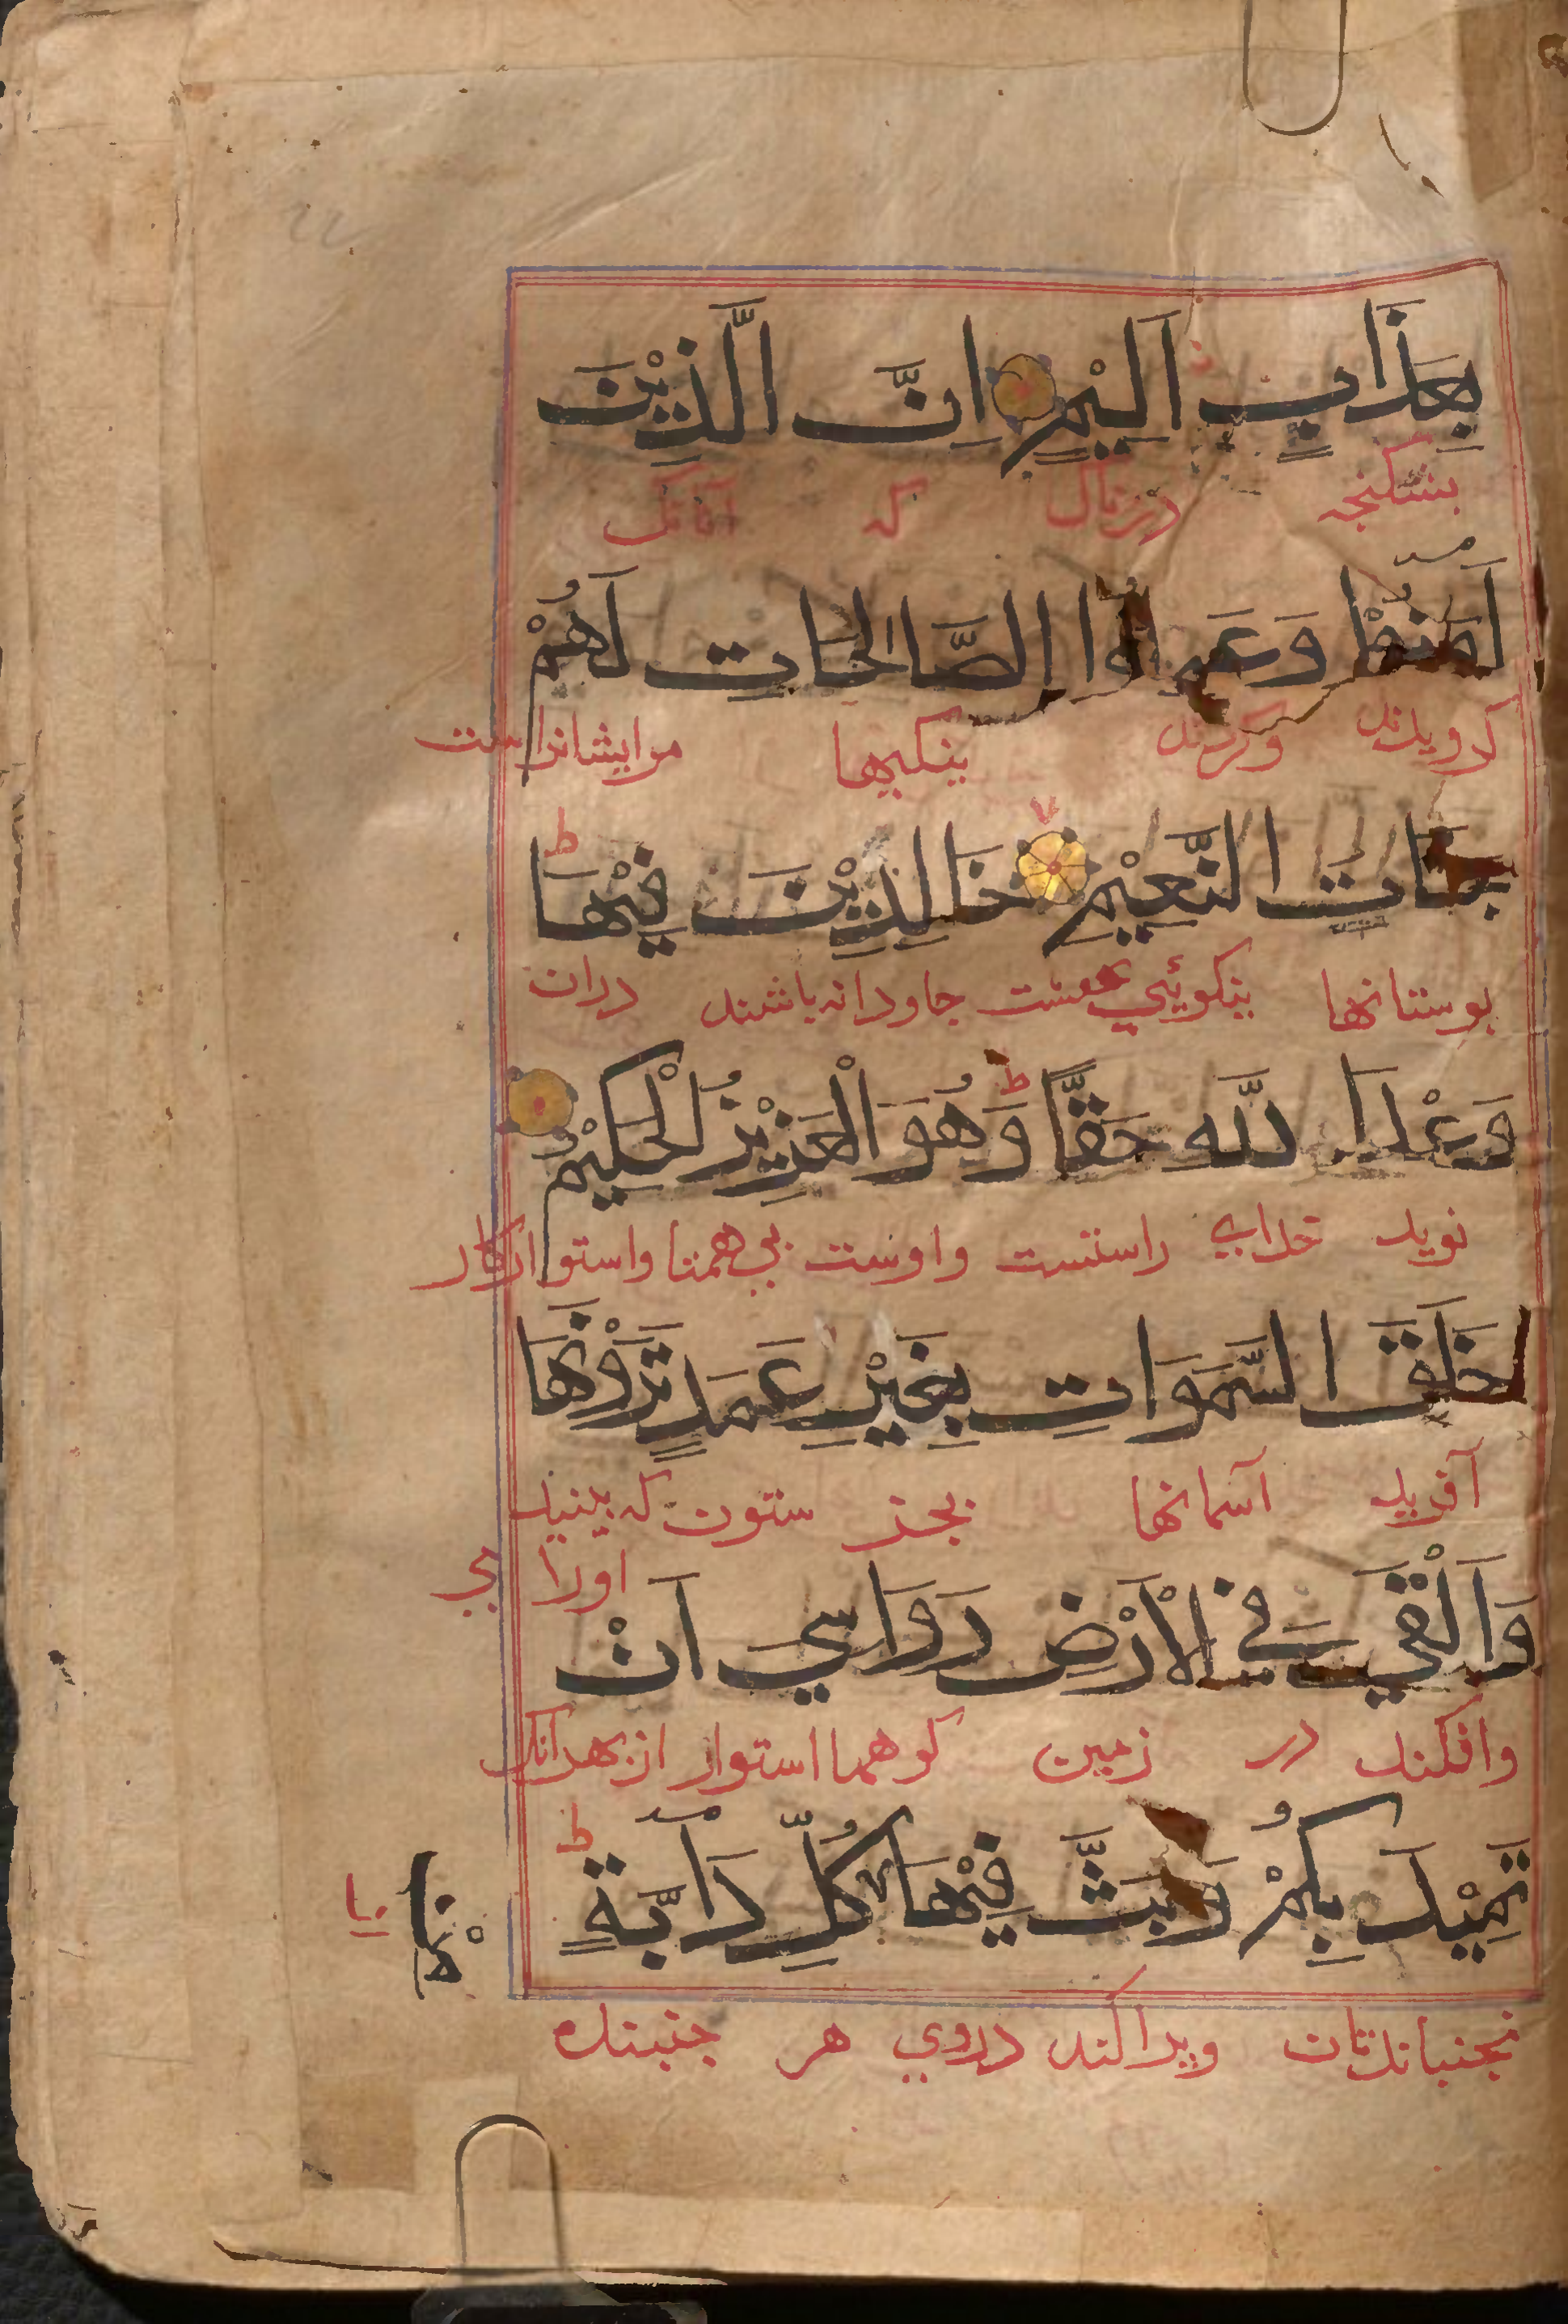 بِعَذَابٍ اَلِيْمٍ اِنَّ الَّذِيْنَ
بشکنجه دردناک که آنانک
اٰمَنُوْا وَعَمِلُوا الصَّالِحَاتِ لَهُمْ
کرویدند وکردند نیکیها مرایشانراست
جَنَّاتُ النَّعِيْمِ خَالِدِيْنَ فِيْهَا ط
بوستانها نیکوئیی جاودانه باشند دران
وَعْدَ اللّٰهِ حَقًّا ط وَهُوَ الْعَزِيْزُ الْحَكِيْمُ
نوید خدایی راستست واوست بی همتا واستوارکار
خَلَقَ السَّمَوَاتِ بِغَيْرِ عَمَدٍ تَرَوْنَهَا
آفرید آسمانها بجز ستون که بینید
اورا
وَاَلْقٰي فِي الْاَرْضِ رَوَاسِيَ اَنْ
وافکند در زمین کوهها استوار ازبهرآنک
تَمِيْدَ بِكُمْ وَبَثَّ فِيْهَا كُلِّ دَآبَّةٍ ط
نجنباندتان وپراکند دروی هر جنبنده